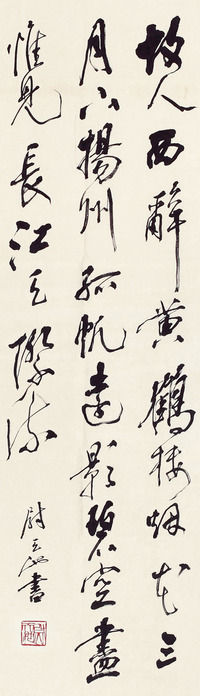 故人西辭黄鶴楼烟花三
月下揚州孤帆遠影碧空盡
惟見長江天際流
尉天池書